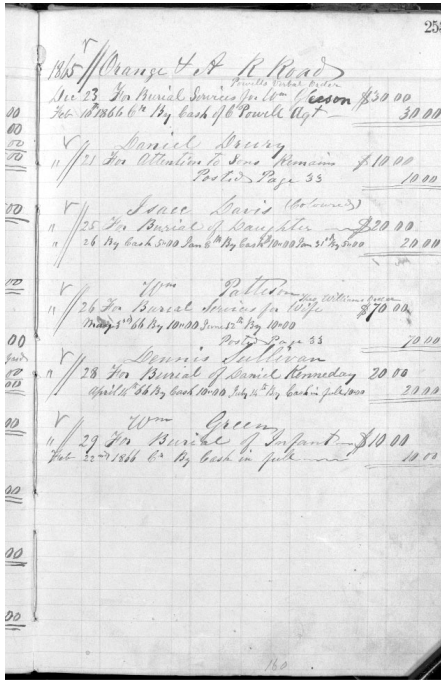 253
1865 // Orange & A R Road
Powells Verbal Order
Dec 23 For Burial Services for Wm Gleeson $30 00
Feb 10th 1866 Cr By Cash of C Powell Agt 30 00
Daniel Drury
" // 21 For Attention to Sons Remains $10 00
Posted Page 33 10 00
Isaac Davis (Coloured)
" // 25 For Burial of Daughter $20 00
" 26 By Cash 5=00 Jan 6th By Cash 10=00 Jan 31st By 5=00 20 00
Wm Patteson
Thos Williams Order
" // 26 For Burial Services for Wife $70 00
May 3rd 66 By 10=00 June 12th By 10=00
Posted Page 33 70 00
Dennis Sullivan
" // 28 For Burial of Daniel Kenneday 20 00
April 4th 66 By Cash 10=00 July 14th By Cash in full 10=00 20 00
Wm Green
" // 29 For Burial of Infant $10 00
Feb 22nd 1866 Cr By Cash in full 10 00
160